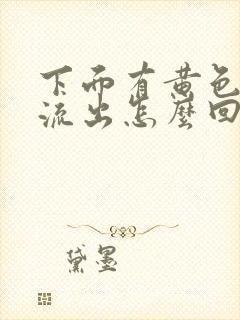 下而有黄色
流出怎麼回
黛墨